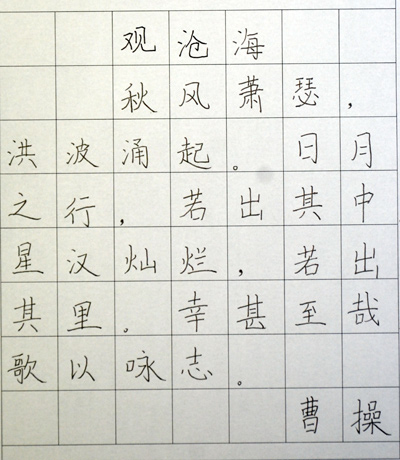 观沧海
秋风萧瑟，
洪波涌起。日月
之行，若出其中
星汉灿烂，若出
其里。幸甚至哉
歌以咏志。
曹操